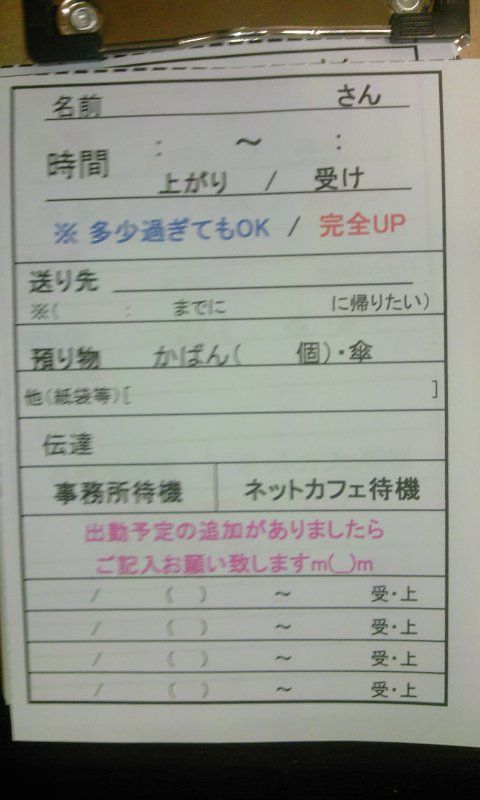 名前 さん
時間 : ～ :
上がり / 受け
※ 多少過ぎてもOK / 完全UP
送り先
※( : までに に帰りたい)
預り物 かばん( 個)・傘
他(紙袋等)[ ]
伝達
事務所待機 ネットカフェ待機
出勤予定の追加がありましたら
ご記入お願い致しますm(__)m
/ ( ) ～ 受・上
/ ( ) ～ 受・上
/ ( ) ～ 受・上
/ ( ) ～ 受・上